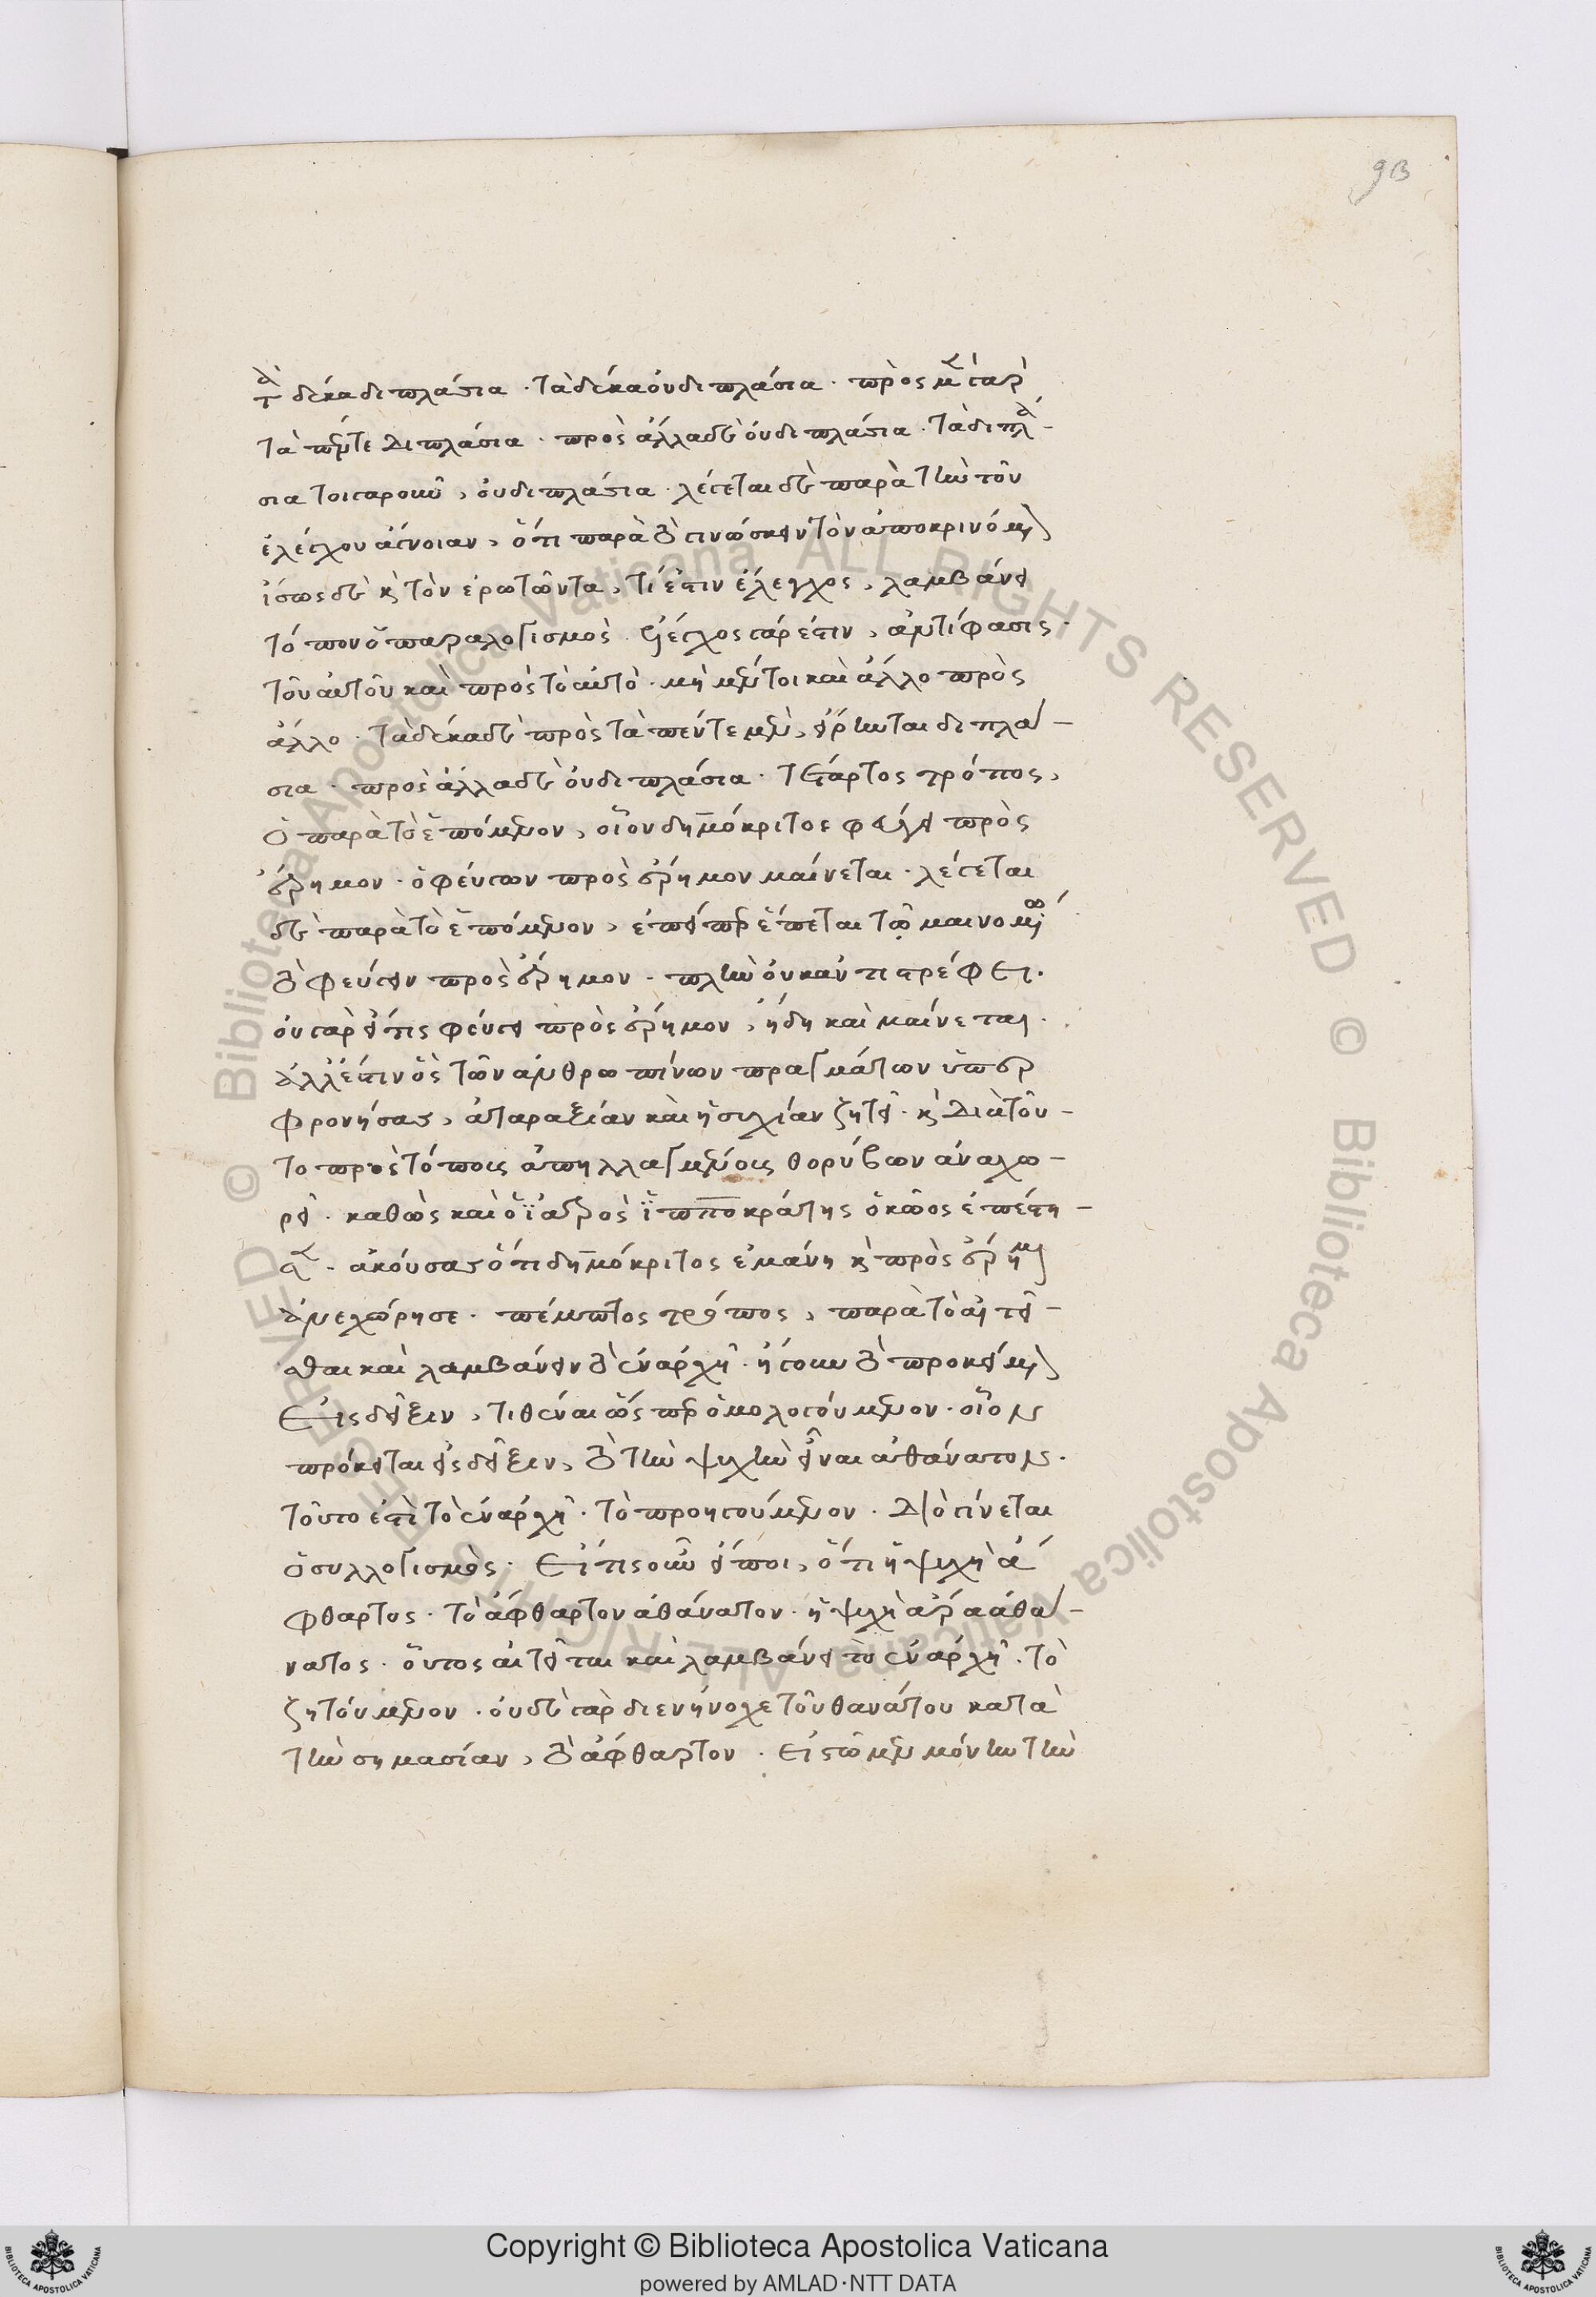 93
τὰ δέκα διπλάσια · τὰ δέκα οὐ διπλάσια · πρὸς μὲν γὰρ
τὰ πέντε διπλάσια · πρὸς ἄλλα δὲ οὐ διπλάσια · τὰ διπλά-
σια τοιγαροῦν, οὐ διπλάσια · λέγεται δὲ παρὰ τὴν τοῦ
ἐλέγχου ἄγνοιαν, ὅτι παρὰ τὸ γινώσκειν τὸν ἀποκρινόμενον
ἴσως δὲ καὶ τὸν ἐρωτῶντα, τί ἐστιν ἔλεγχος, λαμβάνει
τόπον ὁ παραλογισμός · ἔλεγχος γάρ ἐστιν, ἀντίφασις ·
τοῦ αὐτοῦ καὶ πρὸς τὸ αὐτὸ · μὴ μέντοι καὶ ἄλλο πρὸς
ἄλλο · τὰ δέκα δὲ πρὸς τὰ πέντε μὲν, εἴρηται διπλά-
σια · πρὸς ἄλλα δὲ οὐ διπλάσια · τέταρτος τρόπος,
ὁ παρὰ τὸ ἑπόμενον, οἷον δημόκριτος φεύγει πρὸς
ἔρημον · ὁ φεύγων πρὸς ἔρημον μαίνεται · λέγεται
δὲ παρὰ τὸ ἑπόμενον, ἐπείπερ ἕπεται τῷ μαινομένῳ
τὸ φεύγειν πρὸς ἔρημον · πλὴν οὐκ ἀντιστρέφει ·
οὐ γὰρ εἴ τις φεύγει πρὸς ἔρημον, ἤδη καὶ μαίνεται ·
ἀλλ' ἔστιν ὃς τῶν ἀνθρωπίνων πραγμάτων ὑπερ
φρονήσας, ἀταραξίαν καὶ ἡσυχίαν ζητεῖ · καὶ διὰ τοῦ-
το πρὸς τόποις ἀπηλλαγμένοις θορύβων ἀναχω-
ρεῖ · καθὼς καὶ ὁ ἰατρὸς ἱπποκράτης ὁ κῶος ἐπέστη-
σεν · ἀκούσας ὅτι δημόκριτος ἐμάνη καὶ πρὸς ἔρημον
ἀνεχώρησε · πέμπτος τρόπος, παρὰ τὸ αἰτεῖ-
σθαι καὶ λαμβάνειν τὸ ἐν ἀρχῇ · ἤγουν τὸ προκείμενον
εἰς δεῖξιν, τιθέναι ὥσπερ ὁμολογούμενον · οἷον
πρόκειται εἰς δεῖξιν, τὸ τὴν ψυχὴν εἶναι ἀθάνατον ·
τοῦτο ἐστὶ τὸ ἐν ἀρχῇ · τὸ προηγούμενον · διὸ γίνεται
ὁ συλλογισμός · εἴ τις οὖν εἴποι, ὅτι ἡ ψυχὴ ἄ
φθαρτος · τὸ ἄφθαρτον ἀθάνατον · ἡ ψυχὴ ἄρα ἀθά-
νατος · οὗτος αἰτεῖται καὶ λαμβάνει τὸ ἐν ἀρχῇ · τὸ
ζητούμενον · οὐδὲ γὰρ διενήνοχε τοῦ θανάτου κατὰ
τὴν σημασίαν, τὸ ἄφθαρτον · εἰς τὸ μὲν μόνην τὴν
Copyright © Biblioteca Apostolica Vaticana
powered by AMLAD·NTT DATA
© Biblioteca Apostolica Vaticana ALL RIGHTS RESERVED
© Biblioteca Apostolica Vaticana ALL RIGHTS RESERVED
BIBLIOTECA APOSTOLICA VATICANA
BIBLIOTECA APOSTOLICA VATICANA